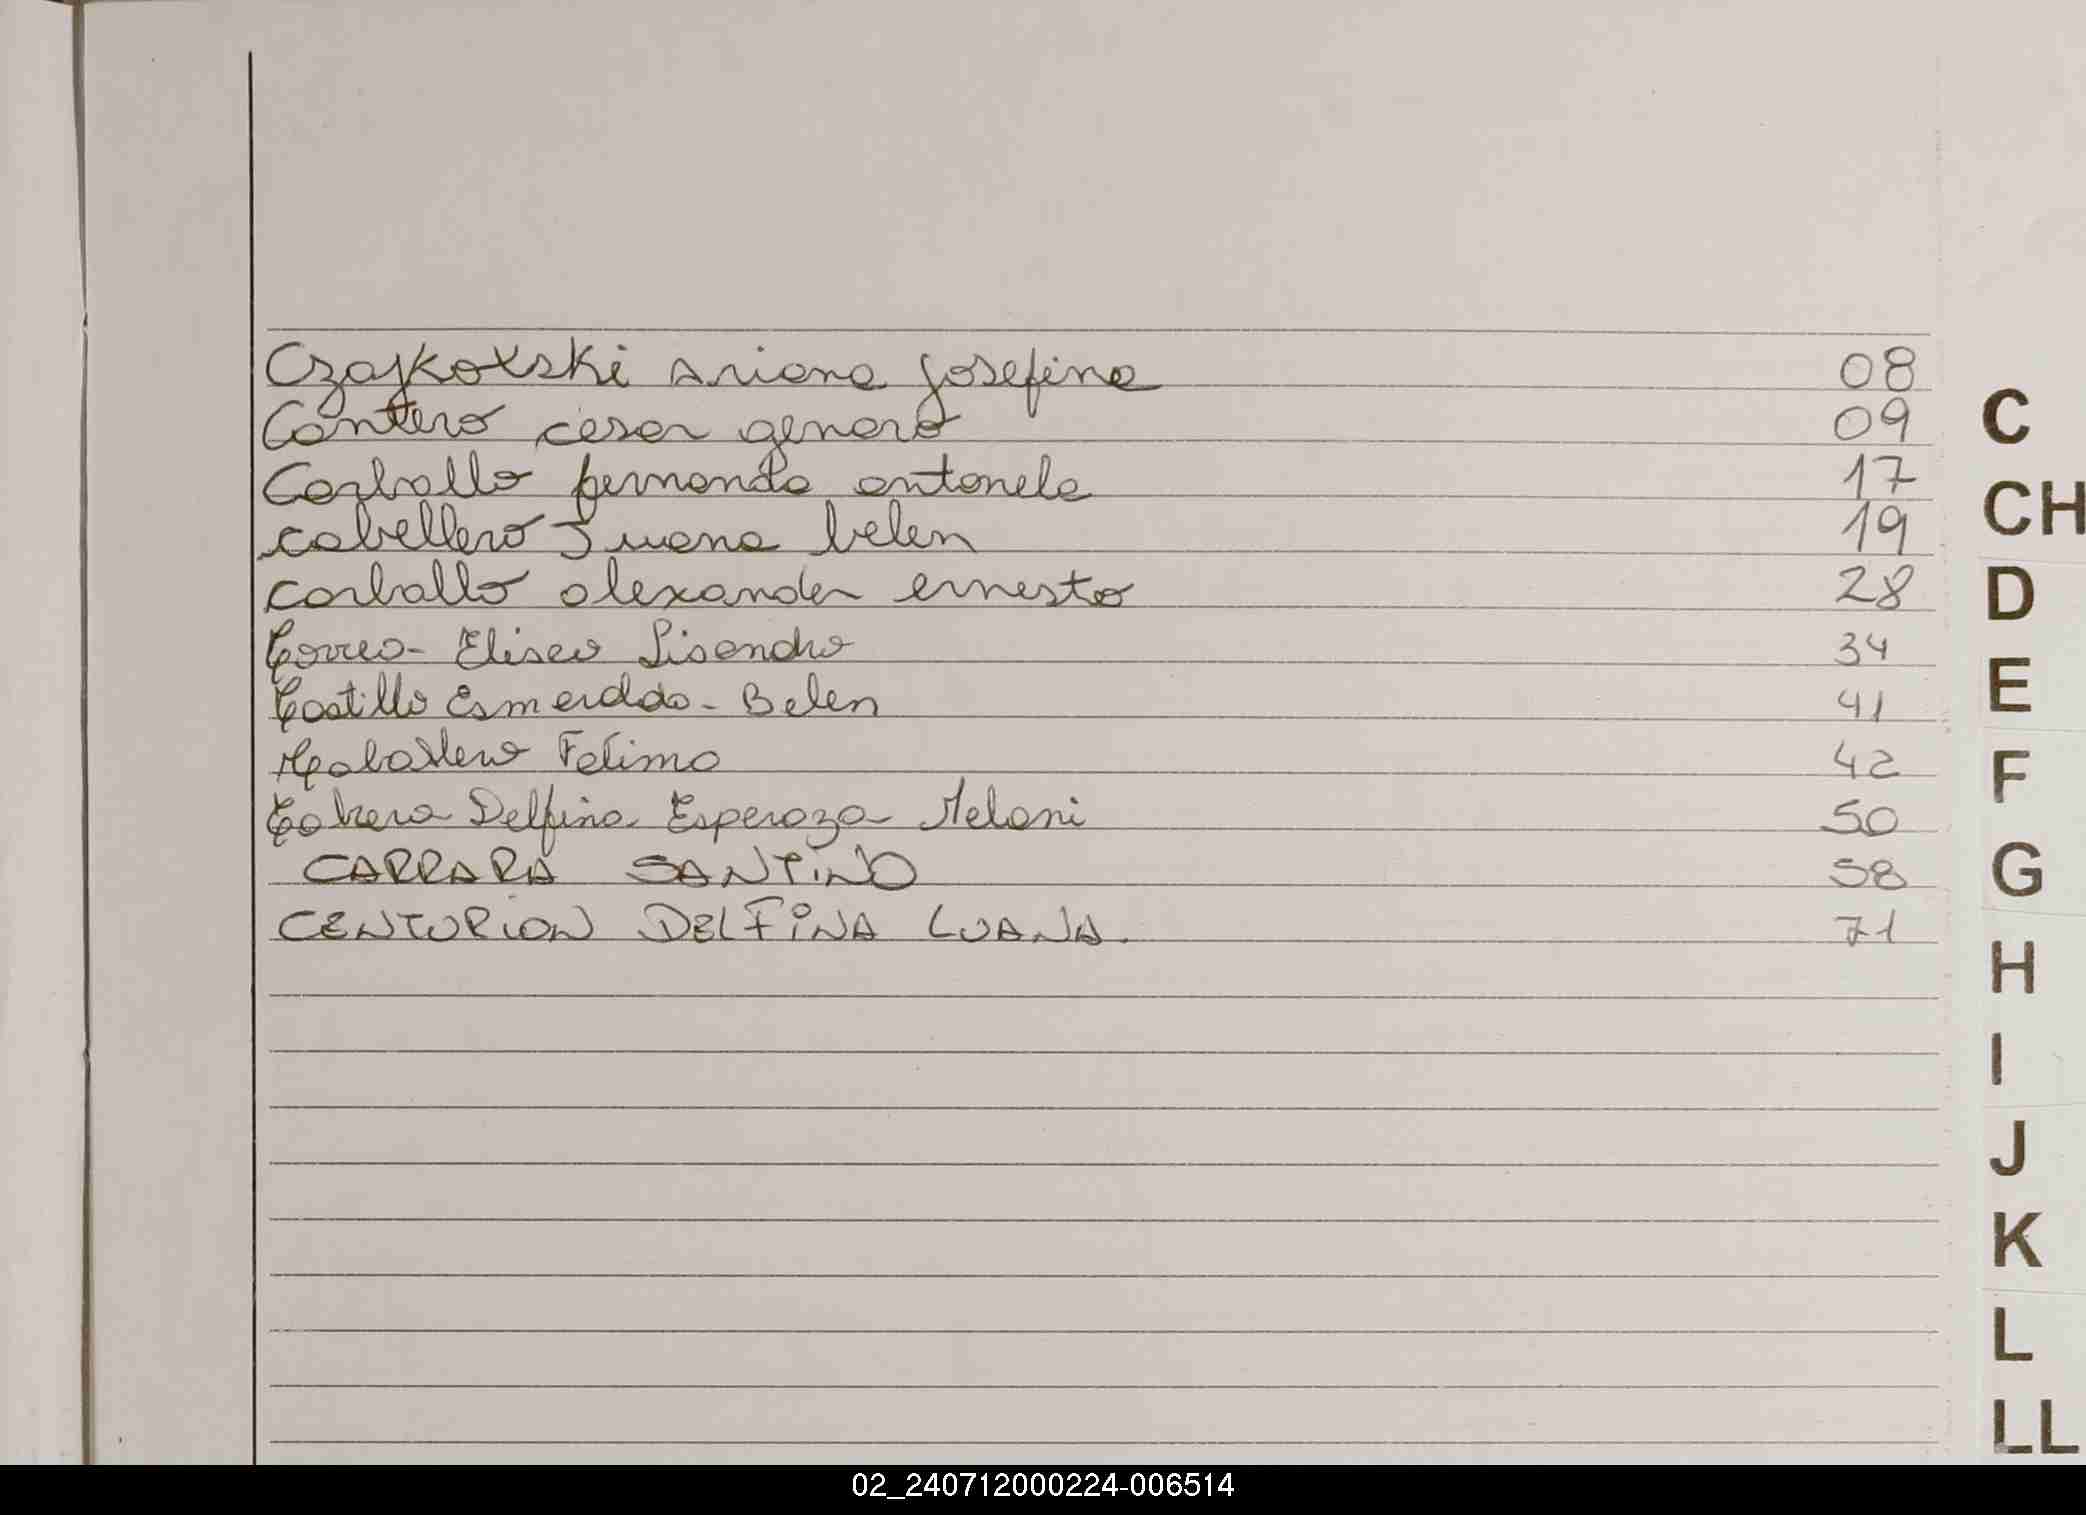 Czajkoxski Ariana Josefina 08
Cantero cesar genaro 09
Carballo fernanda antonela 17
caballero Juana belen 19
carballo alexander ernesto 28
Correa- Eliseo Lisandro 34
Castillo Esmeralda- Belen 41
Fatima 42
Cabrera Delfina Esperaza Melani 50
CARRARA SANTiNO 58
CENTURION DELFiNA LUANA. 71
C
CH
D
E
F
G
H
I
J
K
L
LL
02_240712000224-006514